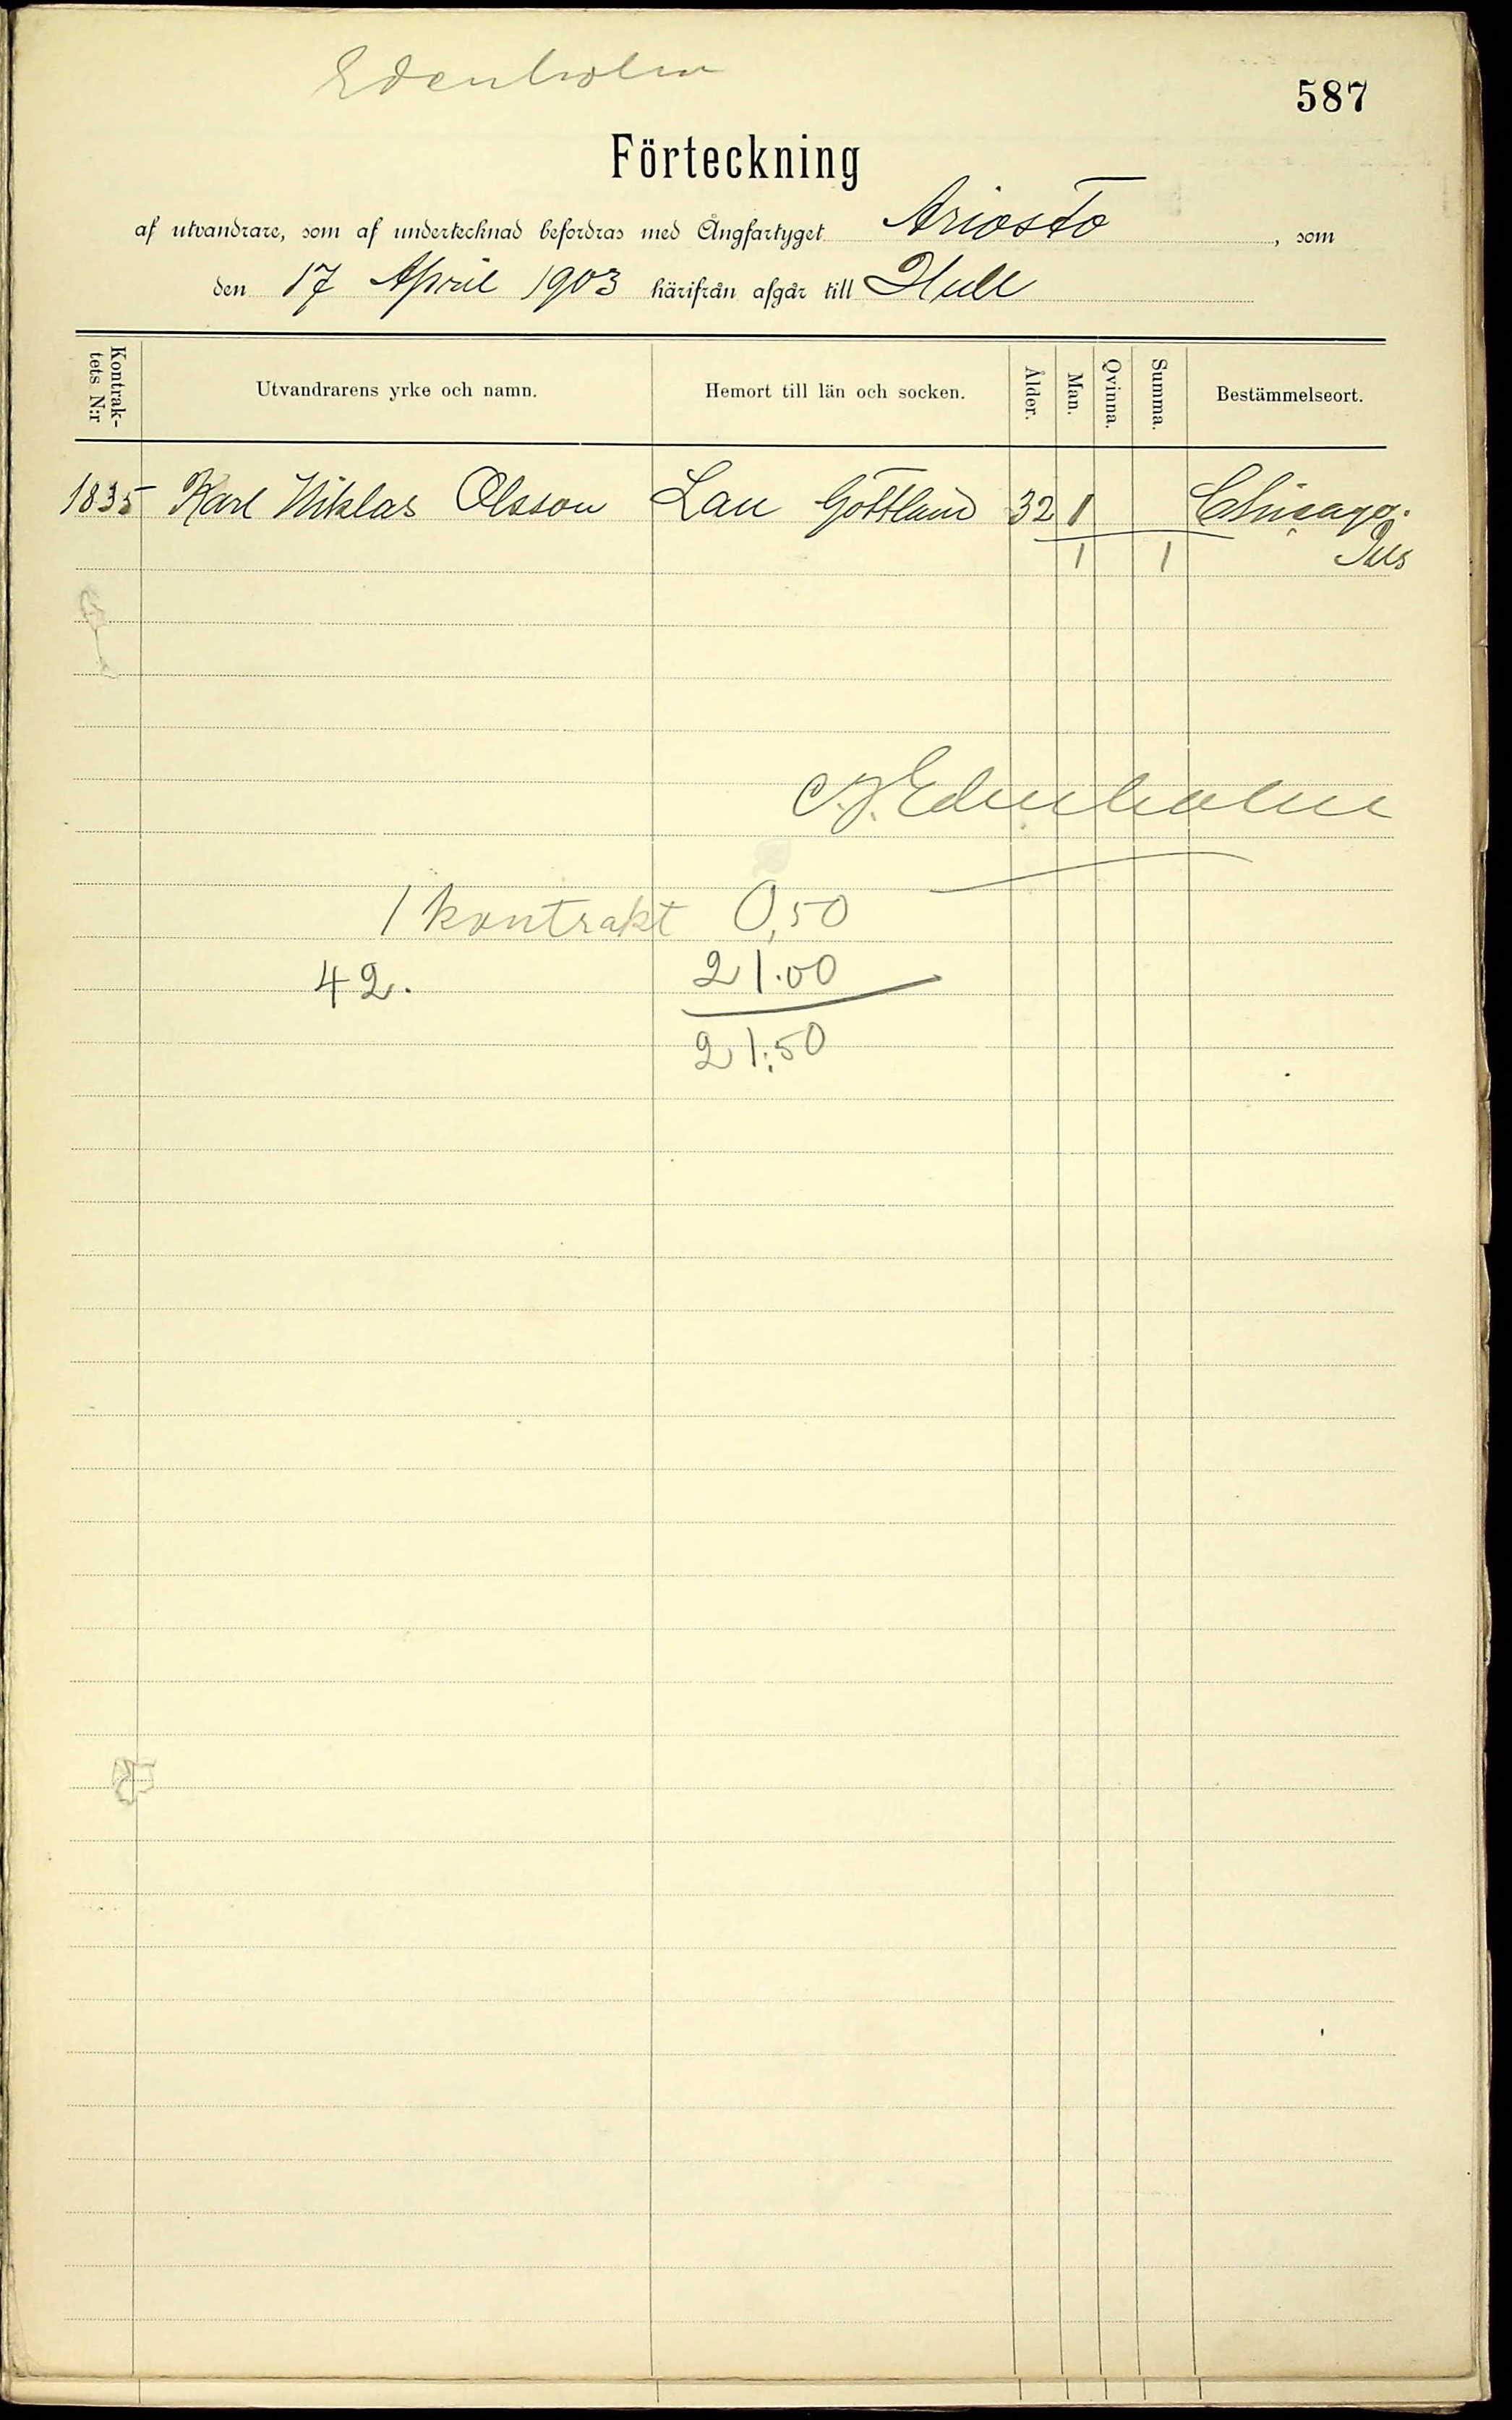 Edenholm
587
Förteckning
af utvandrare, som af undertecknad befordras med Ångfartyget Ariosto, som
den 17 April 1903 härifrån afgår till Hull
Kontrak-tets N:r Utvandrarens yrke och namn. Hemort till län och socken. Ålder. Man. Qvinna. Summa. Bestämmelseort.
1835 Karl Niklas Olsson Lau Gottland 32 1 Chicago.
1 1
C. J. Edenholm
1 kontrakt 0,50
42. 21.00
21,50